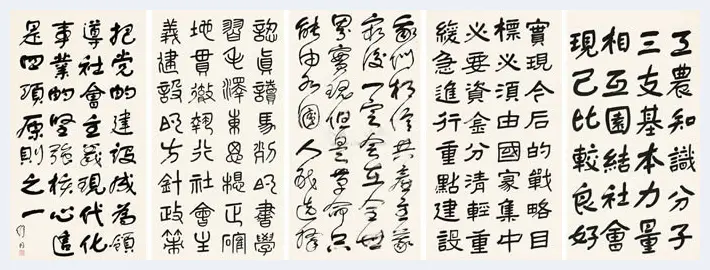 工農知識分子
三支基本力量
相互團結社會
現已比較良好
實現今后的戰略目
標必須由國家集中
必要資金分清輕重
緩急進行重點建設
我們相信共產主義
最後一定會在全世
界實現但是革命只
能由各國人民選擇
認真讀馬列的書學
習毛澤東思想正確
地貫徹執行社會主
義建設的方針政策
把党的建設成為領
導社會主義現代化
事業的堅強核心這
是四項原則之一
舒同